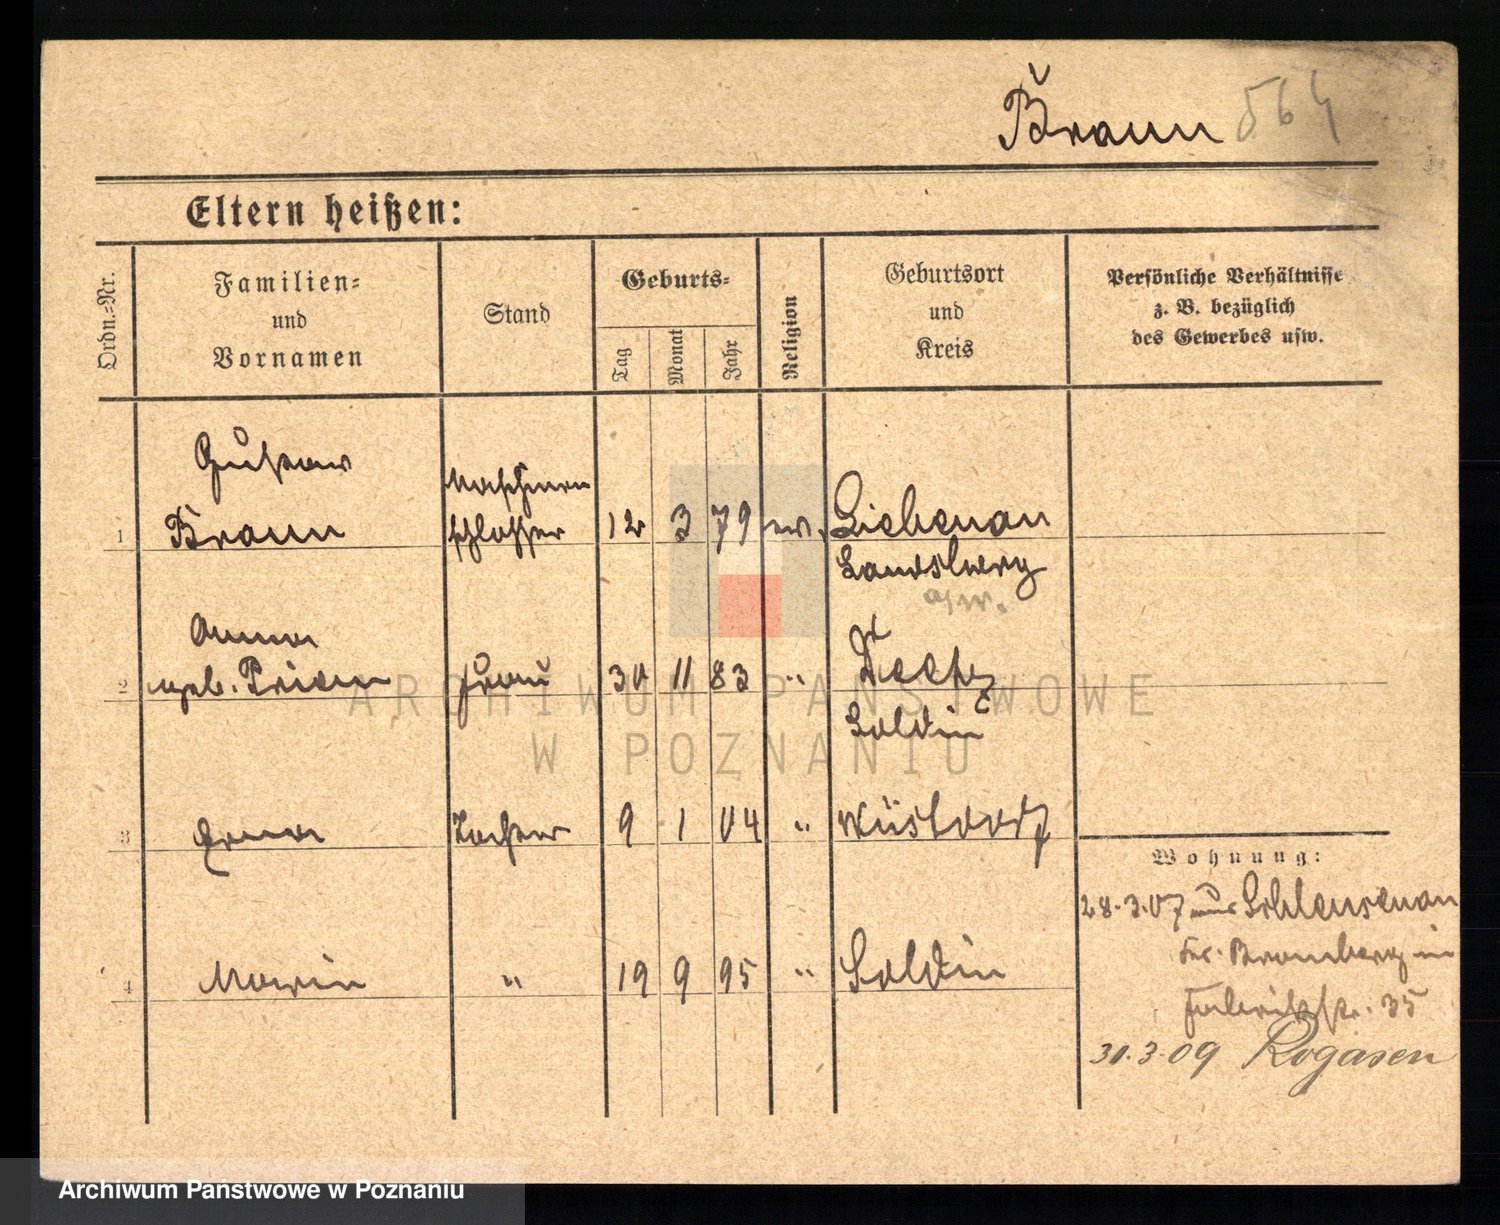 Braun 564
Eltern heißen:
Ordn.=Nr.
Familien=
und
Vornamen
Stand
Geburts=
Tag
Monat
Jahr
Religion
Geburtsort
und
Kreis
Persönliche Verhältnisse
z. B. bezüglich
des Gewerbes usw.
Gustav
Maschinen
1 Braun schlosser 12 3 79 ev. Liebenau
Landsberg
a/W.
Anna
2 geb. Prien Frau 30 11 83 "
Soldin
3 Erna Tochter 9 1 04 " Wüsdorf
Wohnung:
28.3.07 aus Schleusenau
Kr. Bromberg in
4 19 9 95 " Soldin
Fabrikstr. 35
31.3.09 Rogasen
ARCHIWUM PAŃSTWOWE
W POZNANIU
Archiwum Państwowe w Poznaniu